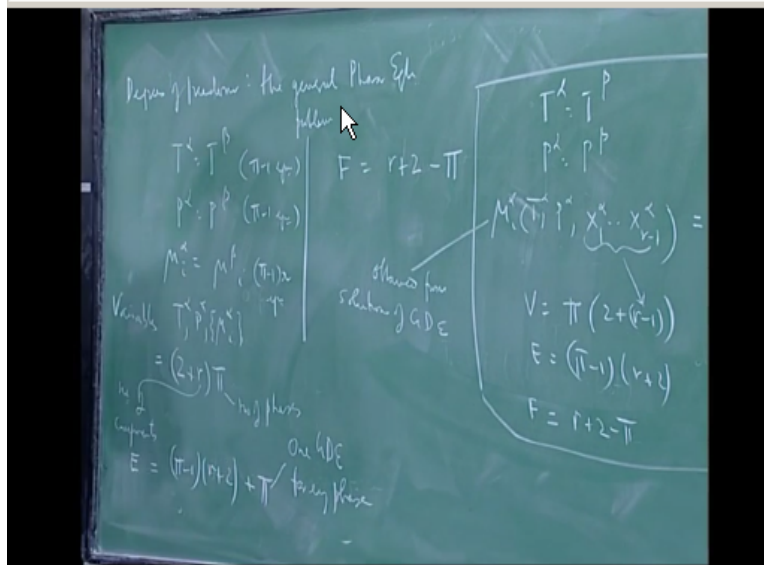 Degrees of freedom : the general Phase Eqb.
problem
T^α = T^β (π-1 eqs)
P^α = P^β (π-1 eqs)
μ_i^α = μ_i^β (π-1)r
eqs
Variables T^α, P^α, {μ_i^α}
= (2+r)π
no. of
components
no. of phases
E = (π-1)(r+2) + π
One GDE
for every phase
F = r+2-π
obtained from
solution of GDE
T^α = T^β
P^α = P^β
μ_i^α(T^α, P^α, x_1^α ... x_{r-1}^α) =
V = π(2+(r-1))
E = (π-1)(r+2)
F = r+2-π